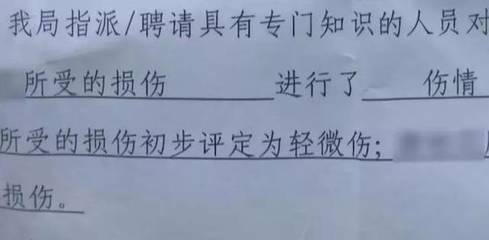 我局指派/聘请具有专门知识的人员对
所受的损伤 进行了 伤情
所受的损伤初步评定为轻微伤;
损伤。